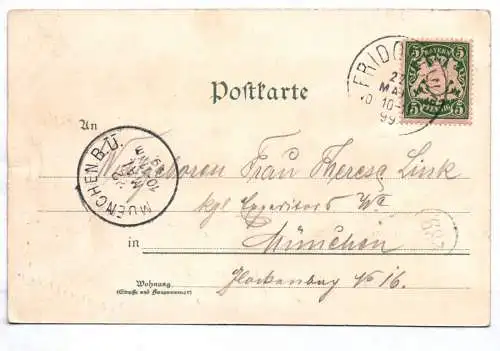 BAYERN
5 5
5 5
FRIDO
MAI
10-
99
Postkarte
An
MUENCHEN B.Ü.
Wohlgeboren Frau Theresa Link
kgl. Expeditors We
in München
Glockenbag No 16.
Wohnung
(Straße und Hausnummer)